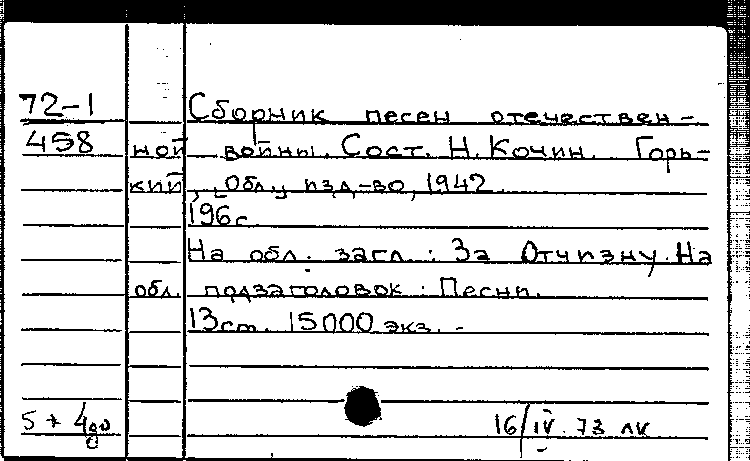 72-1
Сборник песен отечествен-
458
ной войны. Сост. Н. Кочин. Горь-
кий, „Обл.„ изд-во, 1942
196с
На обл. загл.: За Отчизну. На
обл. подзаголовок: Песни.
13cm. 15000 экз. -
16/IV. 73 лк